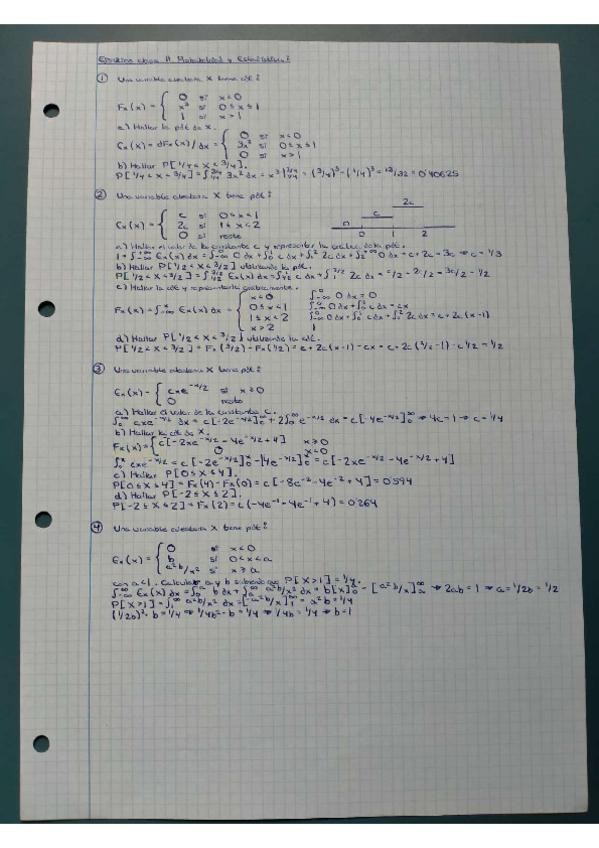 Ejercicios clase 11 Probabilidad y Estadística
① Una variable aleatoria X tiene cdf:
Fx(x) = { 0 si x<0
x³ si 0≤x≤1
1 si x>1
a) Hallar la pdf de X.
fx(x) = dFx(x)/dx = { 0 si x<0
3x² si 0≤x≤1
0 si x>1
b) Hallar P[1/4 < X < 3/4].
P[1/4 < X < 3/4] = ∫ 3x² dx = x³ | = (3/4)³ - (1/4)³ = 13/32 = 0'40625
② Una variable aleatoria X tiene pdf:
fx(x) = { c si 0≤x<1
2c si 1≤x<2
0 si resto
0 c 2c
0 1 2
a) Hallar el valor de la constante c y representar la gráfica de la pdf.
1 = ∫ fx(x) dx = ∫ 0 dx + ∫ c dx + ∫ 2c dx + ∫ 0 dx = c + 2c = 3c → c = 1/3
b) Hallar P[1/2 < X < 3/2] utilizando la pdf.
P[1/2 < X < 3/2] = ∫ fx(x) dx = ∫ c dx + ∫ 2c dx = c/2 + 2c/2 = 3c/2 = 1/2
c) Hallar la cdf y representarla gráficamente.
Fx(x) = ∫ fx(x) dx = { x<0 ∫ 0 dx = 0
0≤x<1 ∫ 0 dx + ∫ c dx = cx
1≤x<2 ∫ 0 dx + ∫ c dx + ∫ 2c dx = c + 2c(x-1)
x>2 1
d) Hallar P[1/2 < X < 3/2] utilizando la cdf.
P[1/2 < X < 3/2] = Fx(3/2) - Fx(1/2) = c + 2c(x-1) - cx = c + 2c(3/2-1) - c1/2 = 1/2
③ Una variable aleatoria X tiene pdf:
fx(x) = { cxe^-x/2 si x≥0
0 resto
a) Hallar el valor de la constante c.
∫ cxe^-x/2 dx = c[-2e^-x/2] + 2∫ e^-x/2 dx = c[-4e^-x/2] → 4c = 1 → c = 1/4
b) Hallar la cdf de X.
Fx(x) = { c[-2xe^-x/2 - 4e^-x/2 + 4] x≥0
0 x<0
∫ cxe^-x/2 = c[-2e^-x/2] - [4e^-x/2] = c[-2xe^-x/2 - 4e^-x/2 + 4]
c) Hallar P[0≤X≤4].
P[0≤X≤4] = Fx(4) - Fx(0) = c[-8e^-2 - 4e^-2 + 4] = 0'594
d) Hallar P[-2≤X≤2].
P[-2≤X≤2] = Fx(2) = c(-4e^-1 - 4e^-1 + 4) = 0'264
④ Una variable aleatoria X tiene pdf:
fx(x) = { 0 si x<0
b si 0<x<a
a²b/x² si x≥a
con a<1. Calcular a y b sabiendo P[X>1] = 1/4.
∫ fx(x) dx = ∫ b dx + ∫ a²b/x² dx = b[x] - [a²b/x] → 2ab = 1 → a = 1/2b = 1/2
P[X>1] = ∫ a²b/x² dx = [-a²b/x] = a²b = 1/4
(1/2b)²·b = 1/4 → 1/4b²·b = 1/4 → 1/4b = 1/4 → b=1